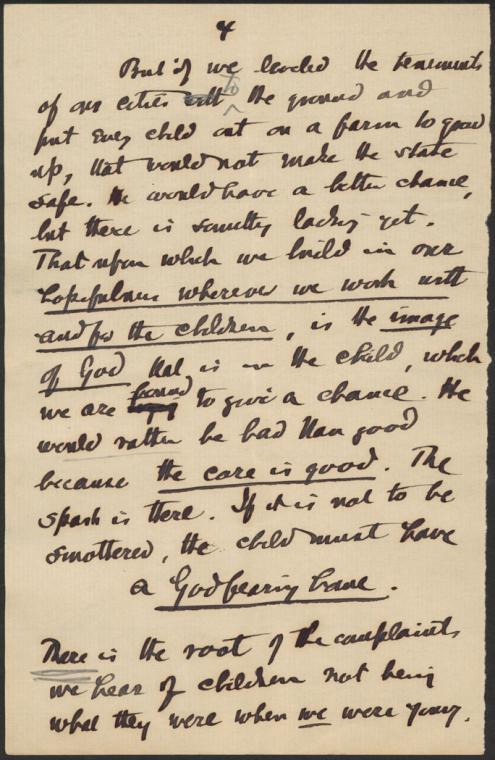 4
But if we leveled the tenements
of our cities to the ground and
put every child out on a farm to grow
up, that would not make the state
safe. He would have a better chance,
but there is something lacking yet.
That upon which we build in our
hopefulness wherever we work with
and for the children, is the image
of God that is in the child, which
we are bound to give a chance. He
would rather be bad than good
because the core is good. The
spark is there. If it is not to be
smothered, the child must have
a Godfearing home.
There is the root of the complaints
we hear of children not being
what they were when we were young.